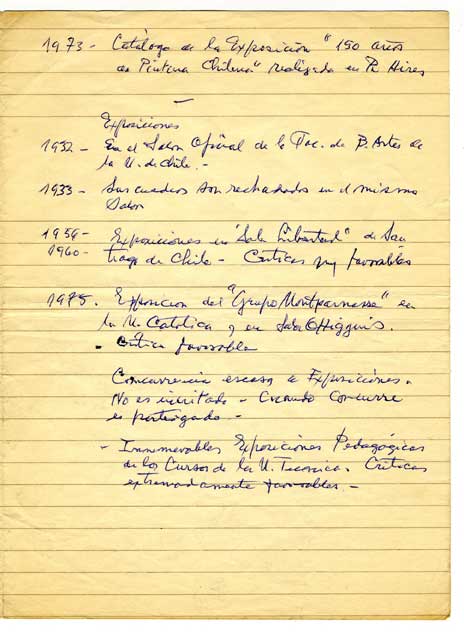 1973 - Catálogo de la Exposición "150 años
de Pintura Chilena" realizada en B. Aires
—
Exposiciones
1932 - En el Salon Oficial de la Fac. de B. Artes de
la U. de Chile. -
1933 - Sus cuadros son rechazados en el mismo
Salon
1959 - Exposiciones en "Sala Libertad" de San
1960 - tiago de Chile - Criticas muy favorables
1975. Exposicion del "Grupo Montparnasse" en
la U. Catolica y en Sala O'Higgins.
- Critica favorable
Concurrencia escasa a Exposiciones.
No es invitado - Cuando concurre
es postergado -
- Innumerables Exposiciones Pedagógicas
de los Cursos de la U. Tecnica. Criticas
extremadamente favorables. -